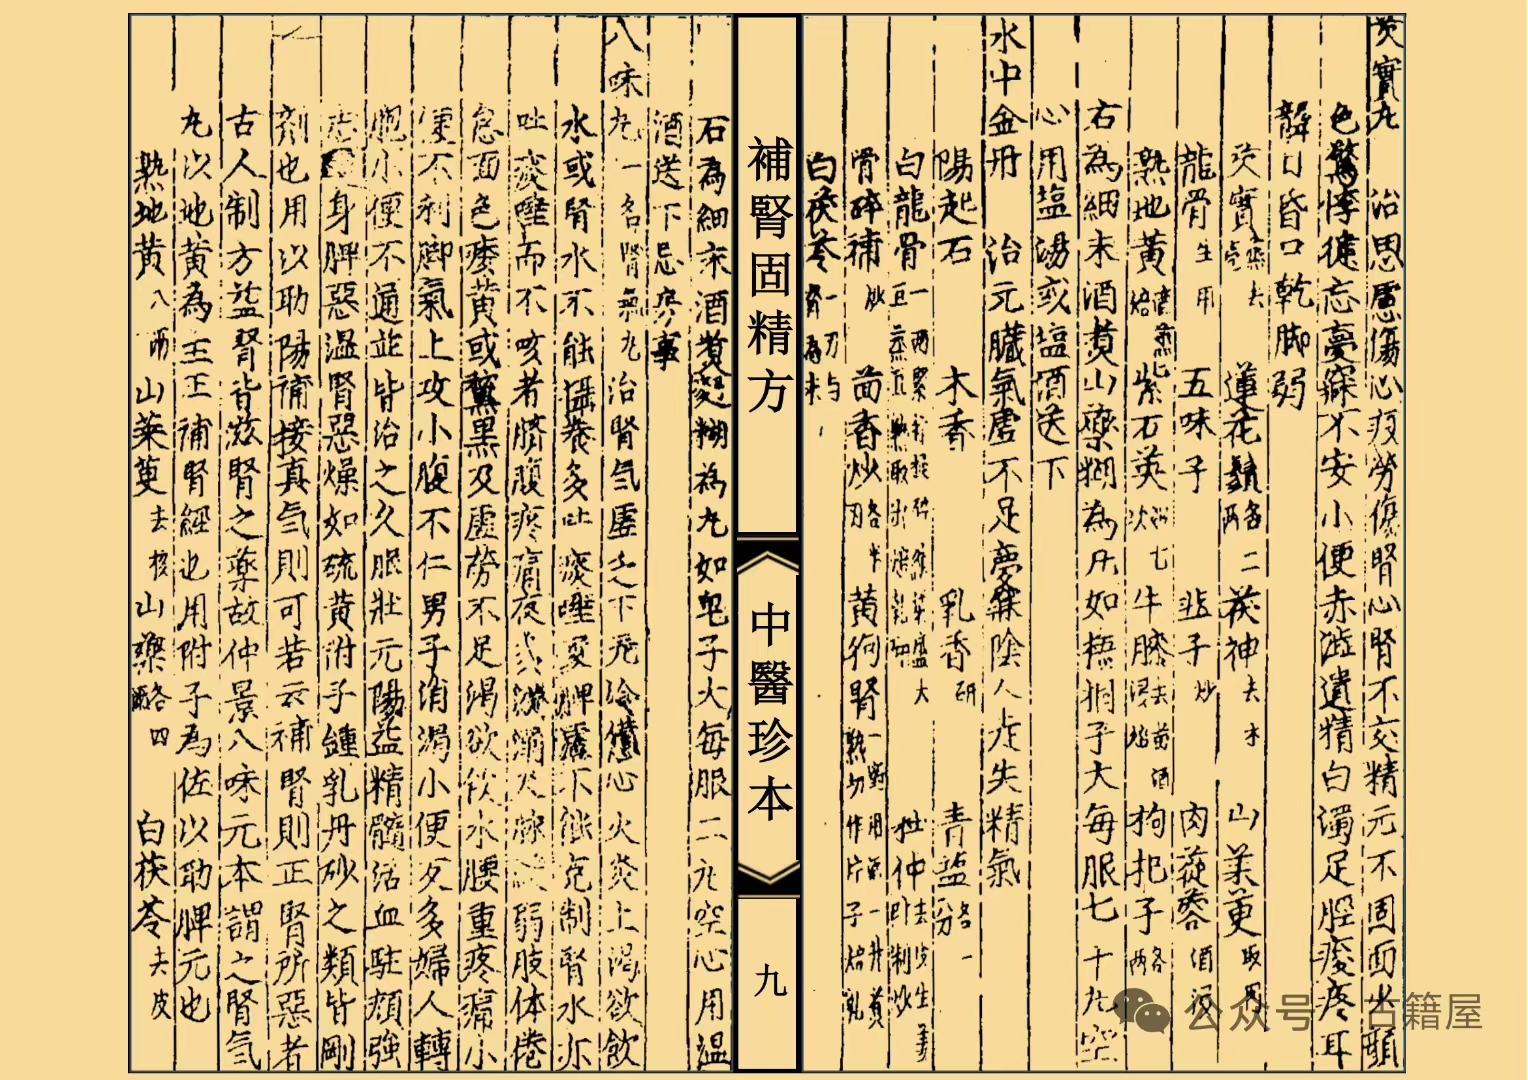 芡實丸　治思慮傷心疲勞傷腎心腎不交精元不固面少顏
色驚悸健忘夢寐不安小便赤澁遺精白濁足脛痠疼耳
聾目昏口乾脚弱
芡實蒸去殼　蓮花鬚各二兩　茯神去木　山茱萸取肉
龍骨生用　五味子　韭子炒　肉蓯蓉酒浸
熟地黃酒蒸焙　紫石英　牛膝去苗酒浸焙　枸杞子各兩
右為細末酒煑山藥糊為丸如梧桐子大每服七十丸空
心用塩湯或塩酒送下
水中金丹　治元臟氣虛不足夢寐陰人走失精氣
陽起石　木香　乳香研　青塩各一分
白龍骨一兩　杜仲去皮生姜汁制炒
骨碎補炒　茴香炒各半刃　黃狗腎一對用酒一升煑熟切作片子焙乾
白茯苓一刃與腎為末
石為細末酒煑麪糊為丸如皂子大每服二丸空心用溫
酒送下忌房事
八味丸一名腎氣丸治腎气虛乏下元冷憊心火炎上渴欲飲
水或腎水不能攝養多吐痰唾及脾虛不能克制腎水亦
吐痰唾而不咳者臍腹疼痛夜多漩溺弱肢体倦
怠面色痿黄或黧黑及虛勞不足渴欲飲水腰重疼痛小
便不利脚氣上攻小腹不仁男子消渴小便反多婦人轉
胞小便不通並皆治之久服壯元陽益精髓活血駐顏強
志身脾惡溫腎惡燥如硫黄附子鍾乳丹砂之類皆剛
劑也用以助陽補接真气則可若云補腎則正腎所惡者
古人制方益腎皆滋腎之藥故仲景八味元本謂之腎气
丸以地黃為主補腎經也用附子為佐以助脾元也
熟地黃八兩　山茱萸去核　山藥各四兩　白茯苓去皮
補腎固精方
中醫珍本
九
公众号　古籍屋